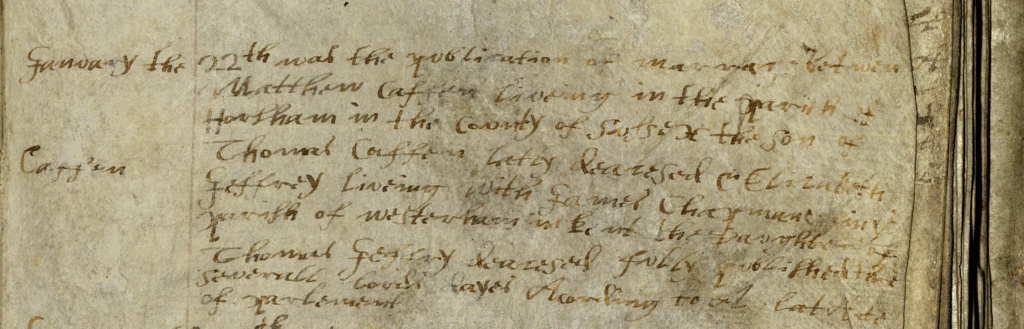 January the 22th was the publication of marrag betwen
Matthew Caffen Liveing in the parish of
Horsham in the County of Sussex the son of
Caffen
Thomas Caffen latly deacesed & Elizabeth
Jeffrey Liveing with James Chapmane in
parish of westerham in kent the Daughter of
Thomas Jeffry deacesed fully published three
severall lords dayes Acording to Act
of parlement